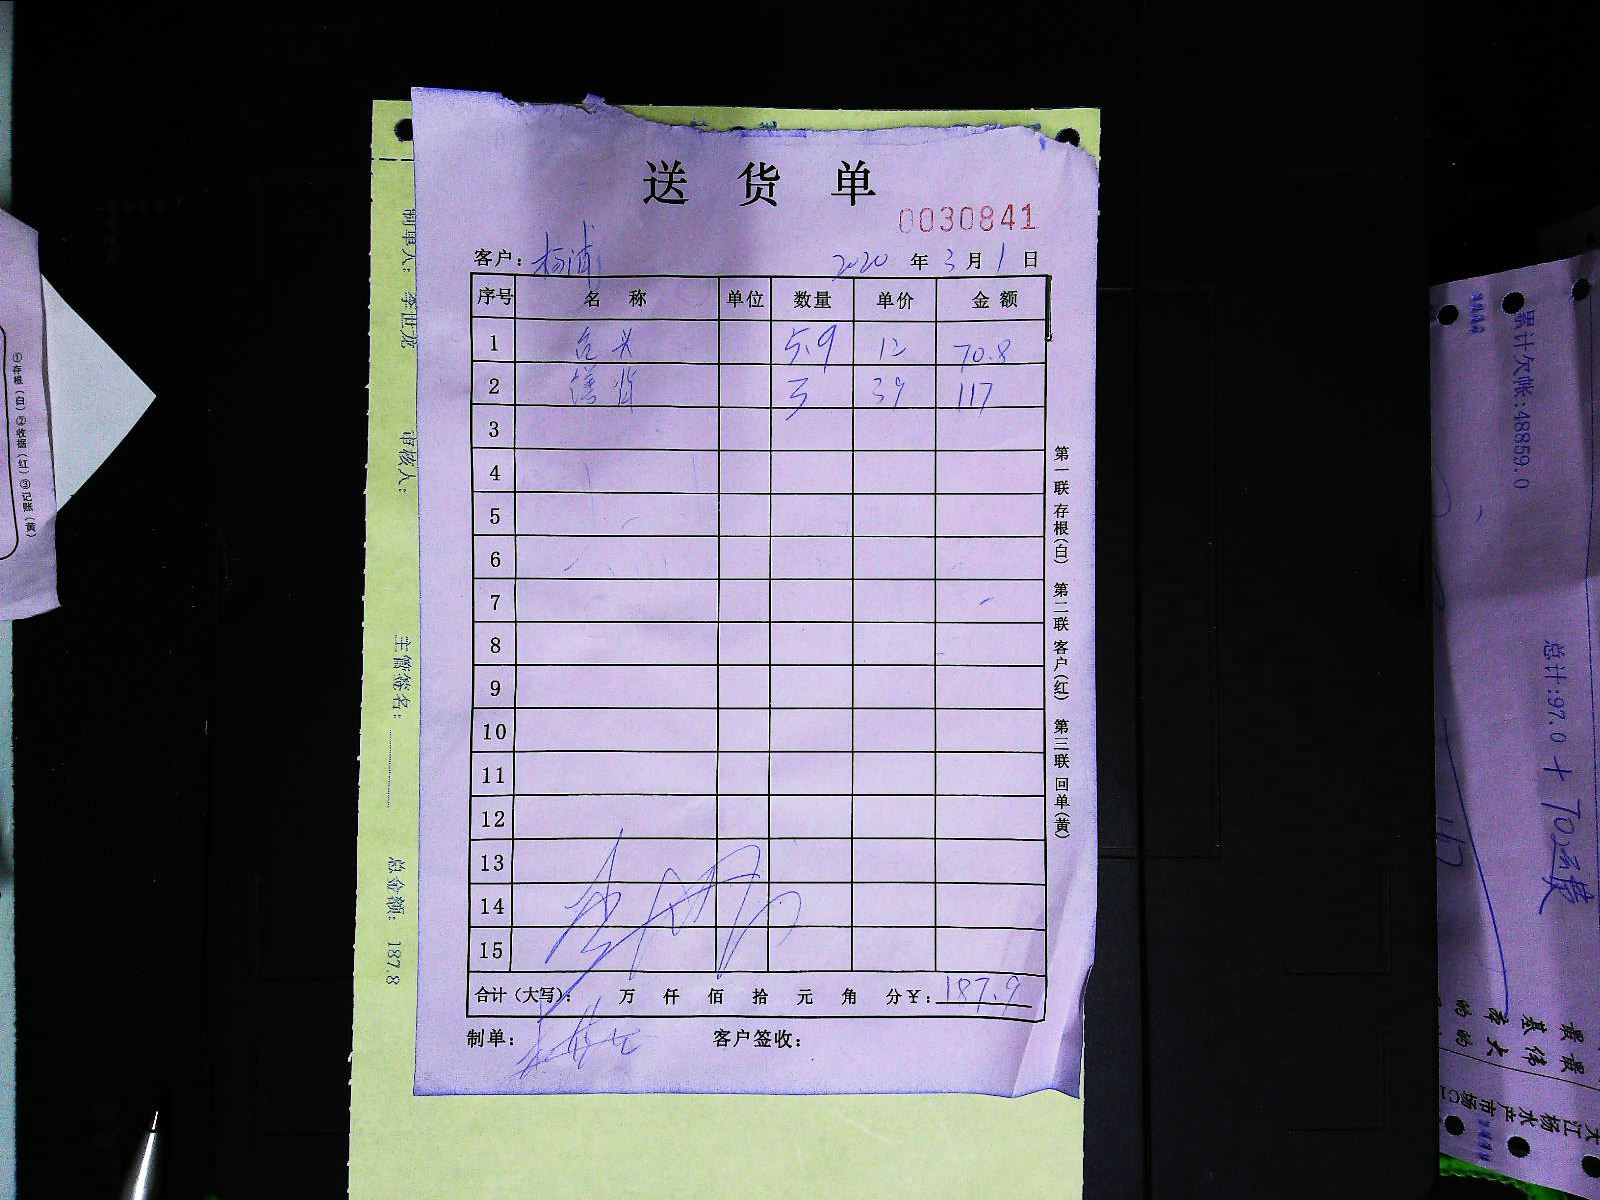 送货单
0030841
客户：杨浦 2020年3月1日
序号 名称 单位 数量 单价 金额
1 5.9 12 70.8
2 3 39 117
3
4
5
6
7
8
9
10
11
12
13
14
15
合计（大写）： 万 仟 佰 拾 元 角 分 ￥：187.9
制单： 客户签收：
第一联 存根（白） 第二联 客户（红） 第三联 回单（黄）
制单人： 李世龙
审核人：
主管签名：
总金额： 187.8
①存根（白）②收据（红）③记账（黄）
累计欠帐:48859.0
总计:97.0 +